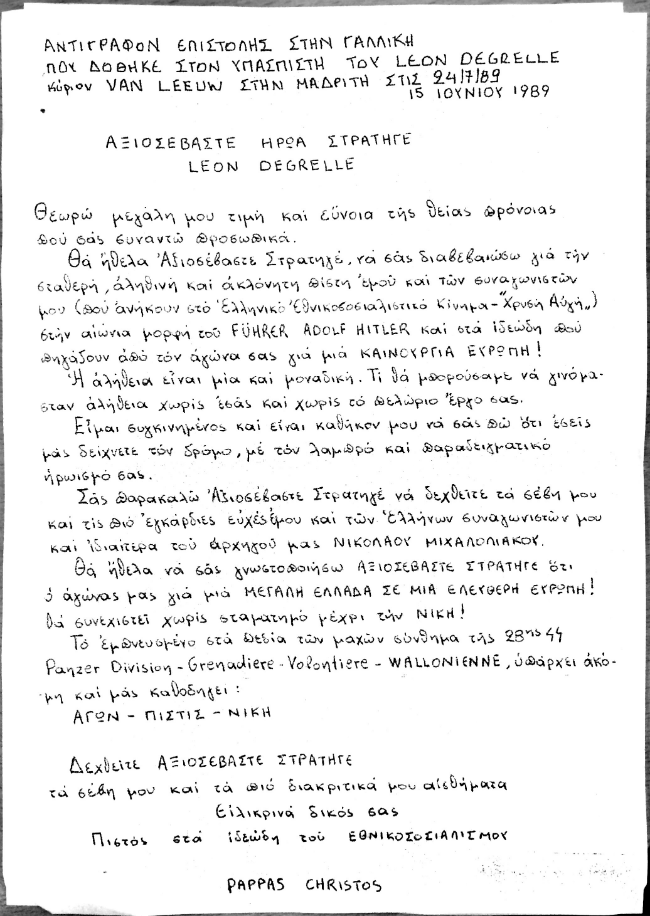 ΑΝΤΙΓΡΑΦΟΝ ΕΠΙΣΤΟΛΗΣ ΣΤΗΝ ΓΑΛΛΙΚΗ
ΠΟΥ ΔΟΘΗΚΕ ΣΤΟΝ ΥΠΑΣΠΙΣΤΗ ΤΟΥ LEON DEGRELLE
Κύριον VAN LEEUW ΣΤΗΝ ΜΑΔΡΙΤΗ ΣΤΙΣ 24/7/89
15 ΙΟΥΝΙΟΥ 1989
ΑΞΙΟΣΕΒΑΣΤΕ ΗΡΩΑ ΣΤΡΑΤΗΓΕ
LEON DEGRELLE
Θεωρώ μεγάλη μου τιμή και εὔνοια τῆς θείας πρόνοιας
πού σᾶς συναντῶ προσωπικά.
Θά ἤθελα Ἀξιοσέβαστε Στρατηγέ, νά σᾶς διαβεβαιώσω γιά τήν
σταθερή, ἀληθινή και ἀκλόνητη πίστη ἐμοῦ και τῶν συναγωνιστῶν
μου (πού ἀνήκουν στό Ἑλληνικό Ἐθνικοσοσιαλιστικό Κίνημα-"Χρυσή Αὐγή„)
στήν αἰώνια μορφή τοῦ FÜHRER ADOLF HITLER και στά ἰδεώδη πού
πηγάζουν ἀπό τόν ἀγώνα σας γιά μιά ΚΑΙΝΟΥΡΓΙΑ ΕΥΡΩΠΗ!
Ἡ ἀλήθεια εἶναι μία και μοναδική. Τί θά μπορούσαμε νά γινόμα-
σταν ἀλήθεια χωρίς ἐσᾶς και χωρίς τό πελώριο ἔργο σας.
Εἶμαι συγκινημένος και εἶναι καθῆκον μου νά σᾶς πῶ ὅτι ἐσεῖς
μᾶς δείχνετε τόν δρόμο, μέ τόν λαμπρό και παραδειγματικό
ἡρωισμό σας.
Σᾶς παρακαλῶ Ἀξιοσέβαστε Στρατηγέ νά δεχθεῖτε τά σέβη μου
και τίς πιό ἐγκάρδιες εὐχές ἐμου και τῶν Ἑλλήνων συναγωνιστῶν μου
και ἰδιαίτερα τοῦ ἀρχηγοῦ μας ΝΙΚΟΛΑΟΥ ΜΙΧΑΛΟΛΙΑΚΟΥ.
Θά ἤθελα νά σᾶς γνωστοποιήσω ΑΞΙΟΣΕΒΑΣΤΕ ΣΤΡΑΤΗΓΕ ὅτι
ὁ ἀγώνας μας γιά μιά ΜΕΓΑΛΗ ΕΛΛΑΔΑ ΣΕ ΜΙΑ ΕΛΕΥΘΕΡΗ ΕΥΡΩΠΗ!
θά συνεχιστεῖ χωρίς σταματημό μέχρι τήν ΝΙΚΗ!
Τό ἐμπνευσμένο στά πεδία τῶν μαχῶν σύνθημα τῆς 28ης 44
Panzer Division-Grenadiere-Volontiere-WALLONIENNE, ὑπάρχει ἀκό-
μη και μᾶς καθοδηγεῖ:
ΑΓΩΝ - ΠΙΣΤΙΣ - ΝΙΚΗ
Δεχθεῖτε ΑΞΙΟΣΕΒΑΣΤΕ ΣΤΡΑΤΗΓΕ
τά σέβη μου και τά πιό διακριτικά μου αἰσθήματα
Εἰλικρινά δικός σας
Πιστός στά ἰδεώδη τοῦ ΕΘΝΙΚΟΣΟΣΙΑΛΙΣΜΟΥ
PAPPAS CHRISTOS